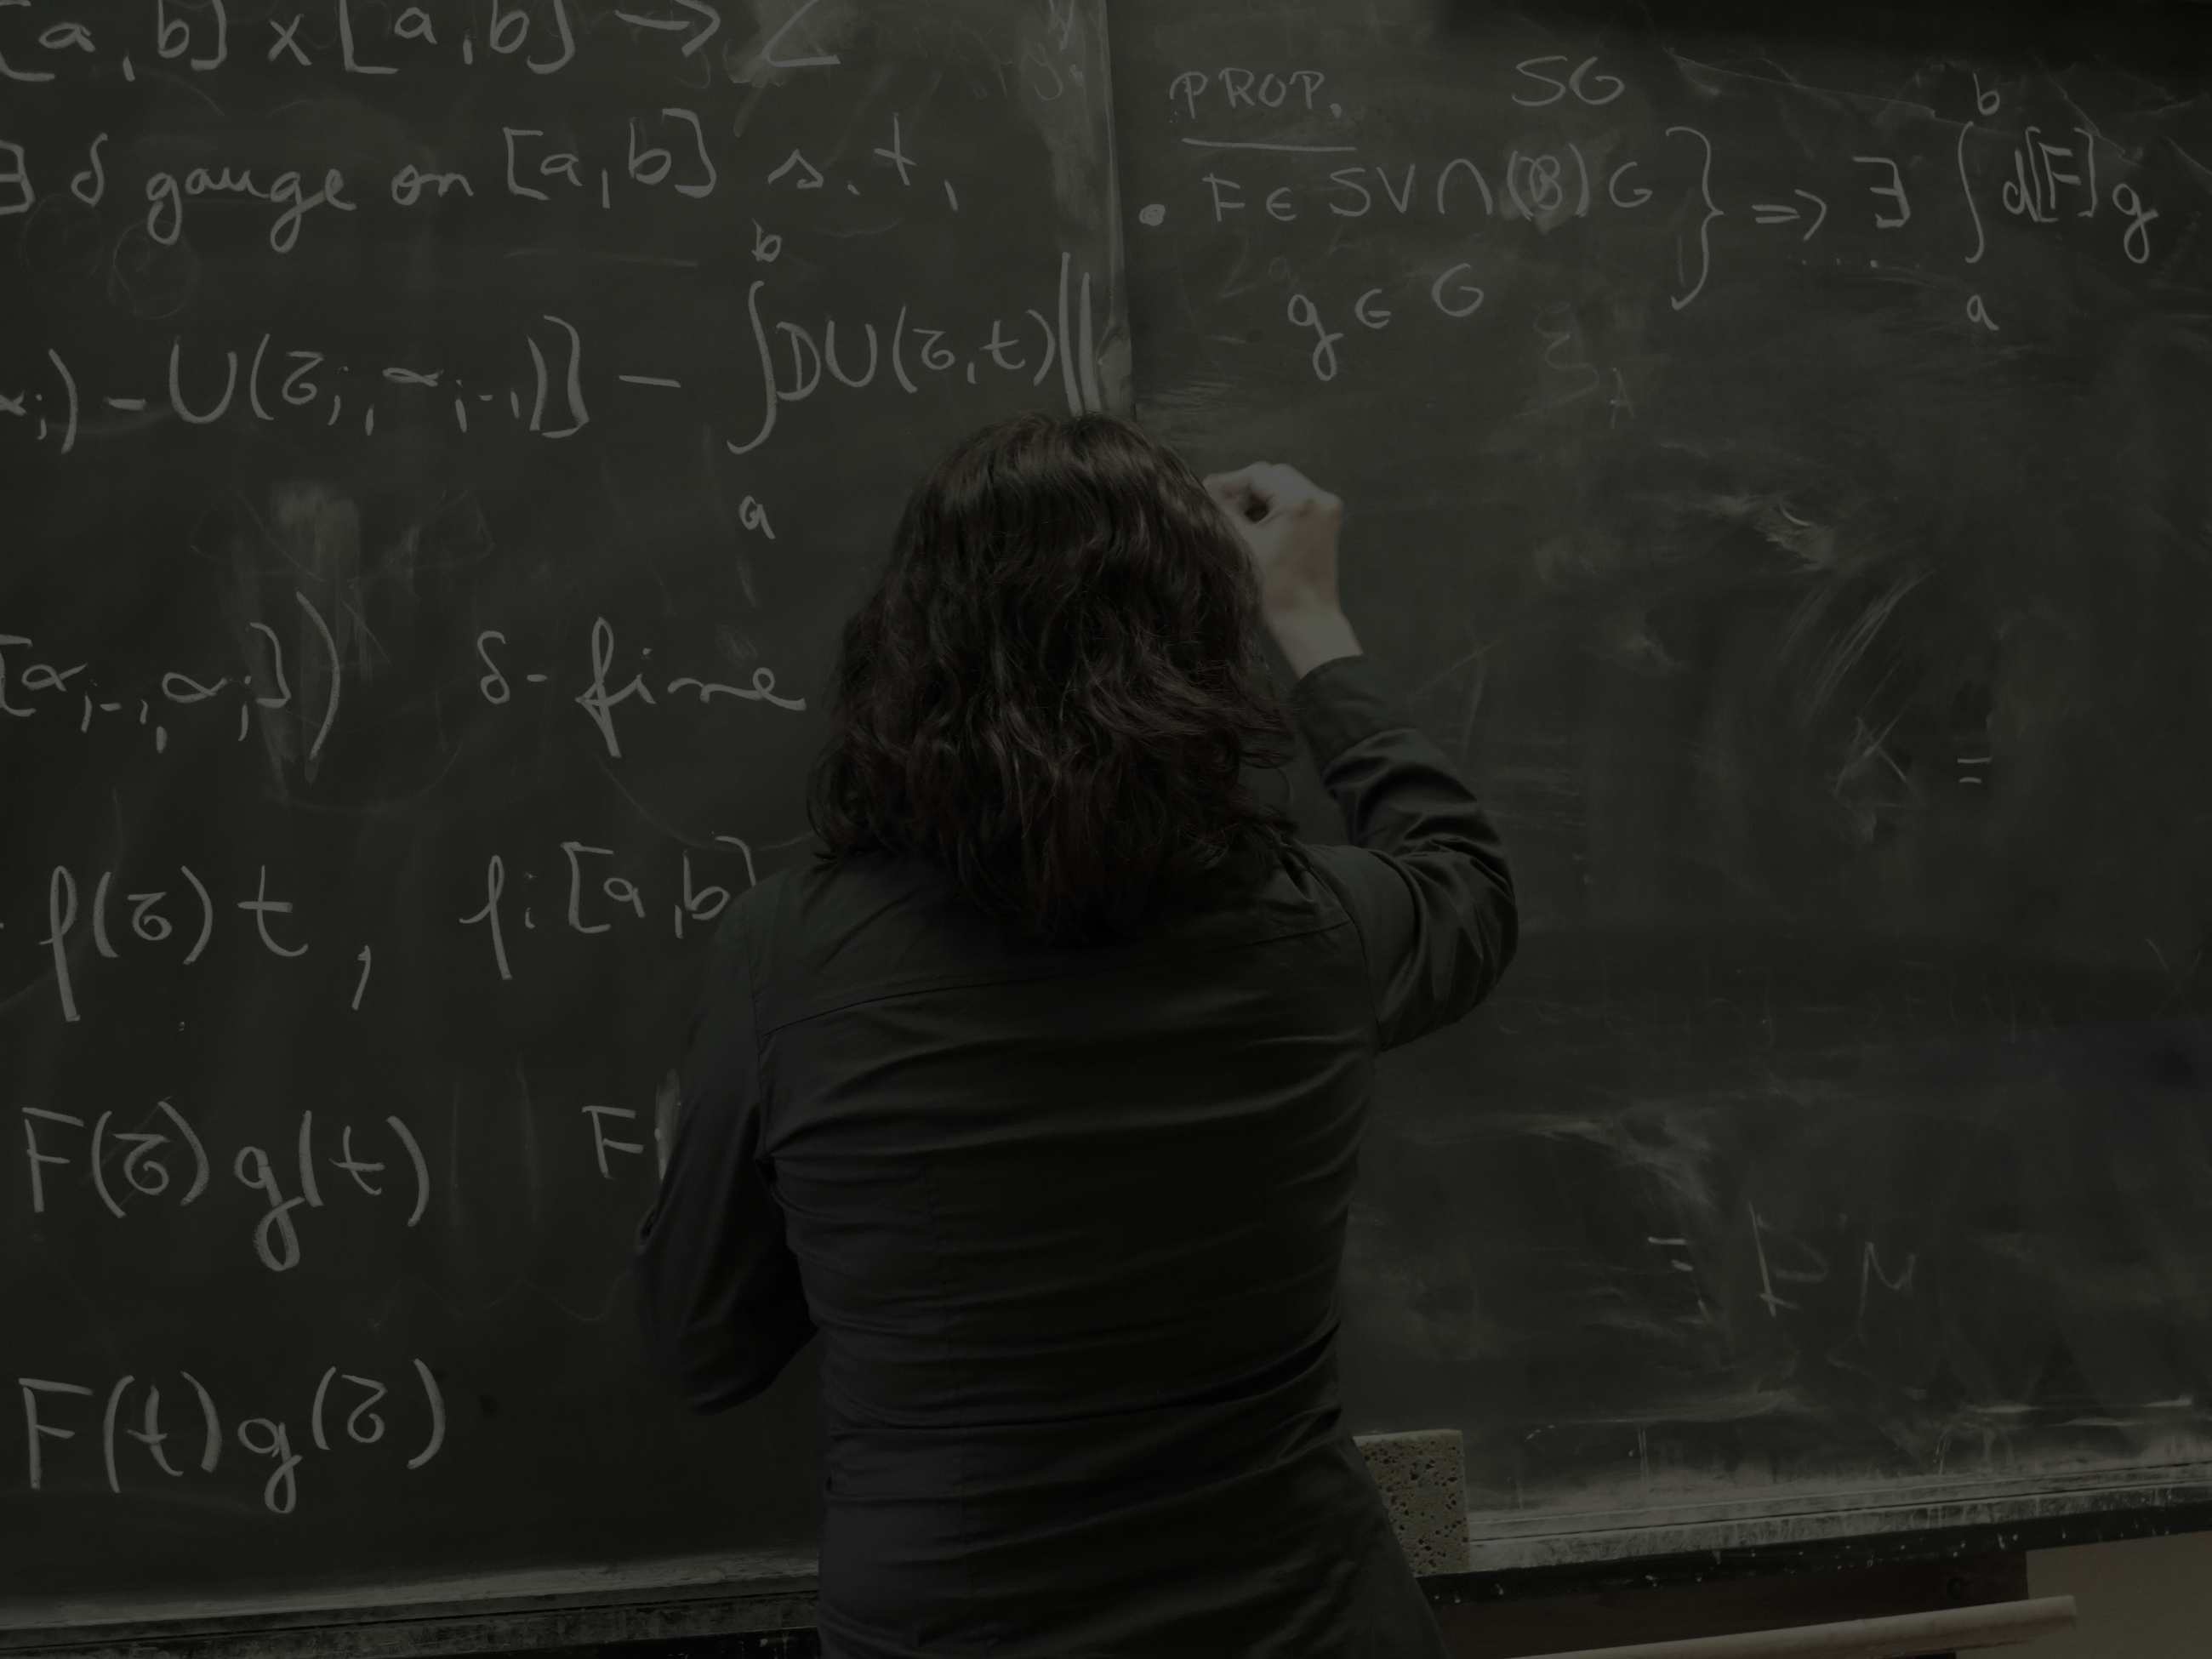 [a,b] x [a,b] →
∃ δ gauge on [a,b] s.t.
α_i) - U(τ_i, α_{i-1})] - ∫_a^b DU(τ,t) ‖
[α_{i-1}, α_i]) δ-fine
f(τ)t, f: [a,b]
F(τ)g(t) F
F(t)g(τ)
PROP. SG
• F ∈ SV ∩ (B)G } => ∃ ∫_a^b d[F]g
g ∈ G